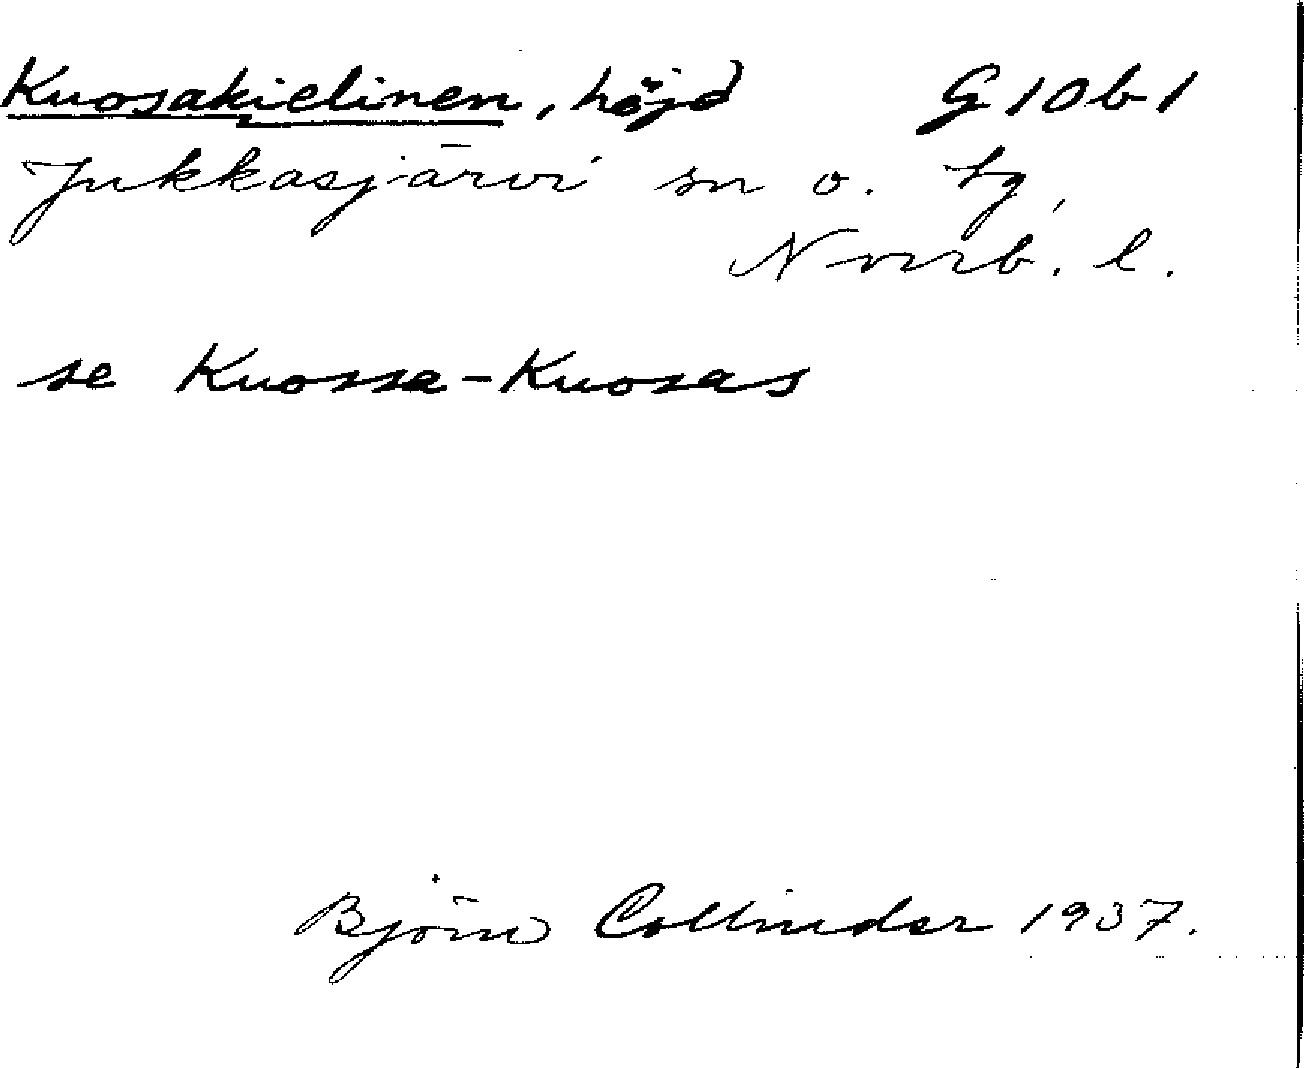 Kuosakielinen, höjd G 10 b 1
Jukkasjärvi sn o. tg,
Norrb. l.
se Kuossa-Kuosas
Björn Collinder 1937.